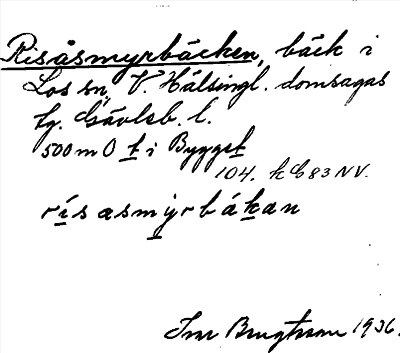 Risåsmyrbäcken, bäck i
Los sn, V. Hälsingl. domsagas
tg. Gävleb. l.
500 m O t i Bygget
104. k 83 NV.
rísasmyrbákan
1936.